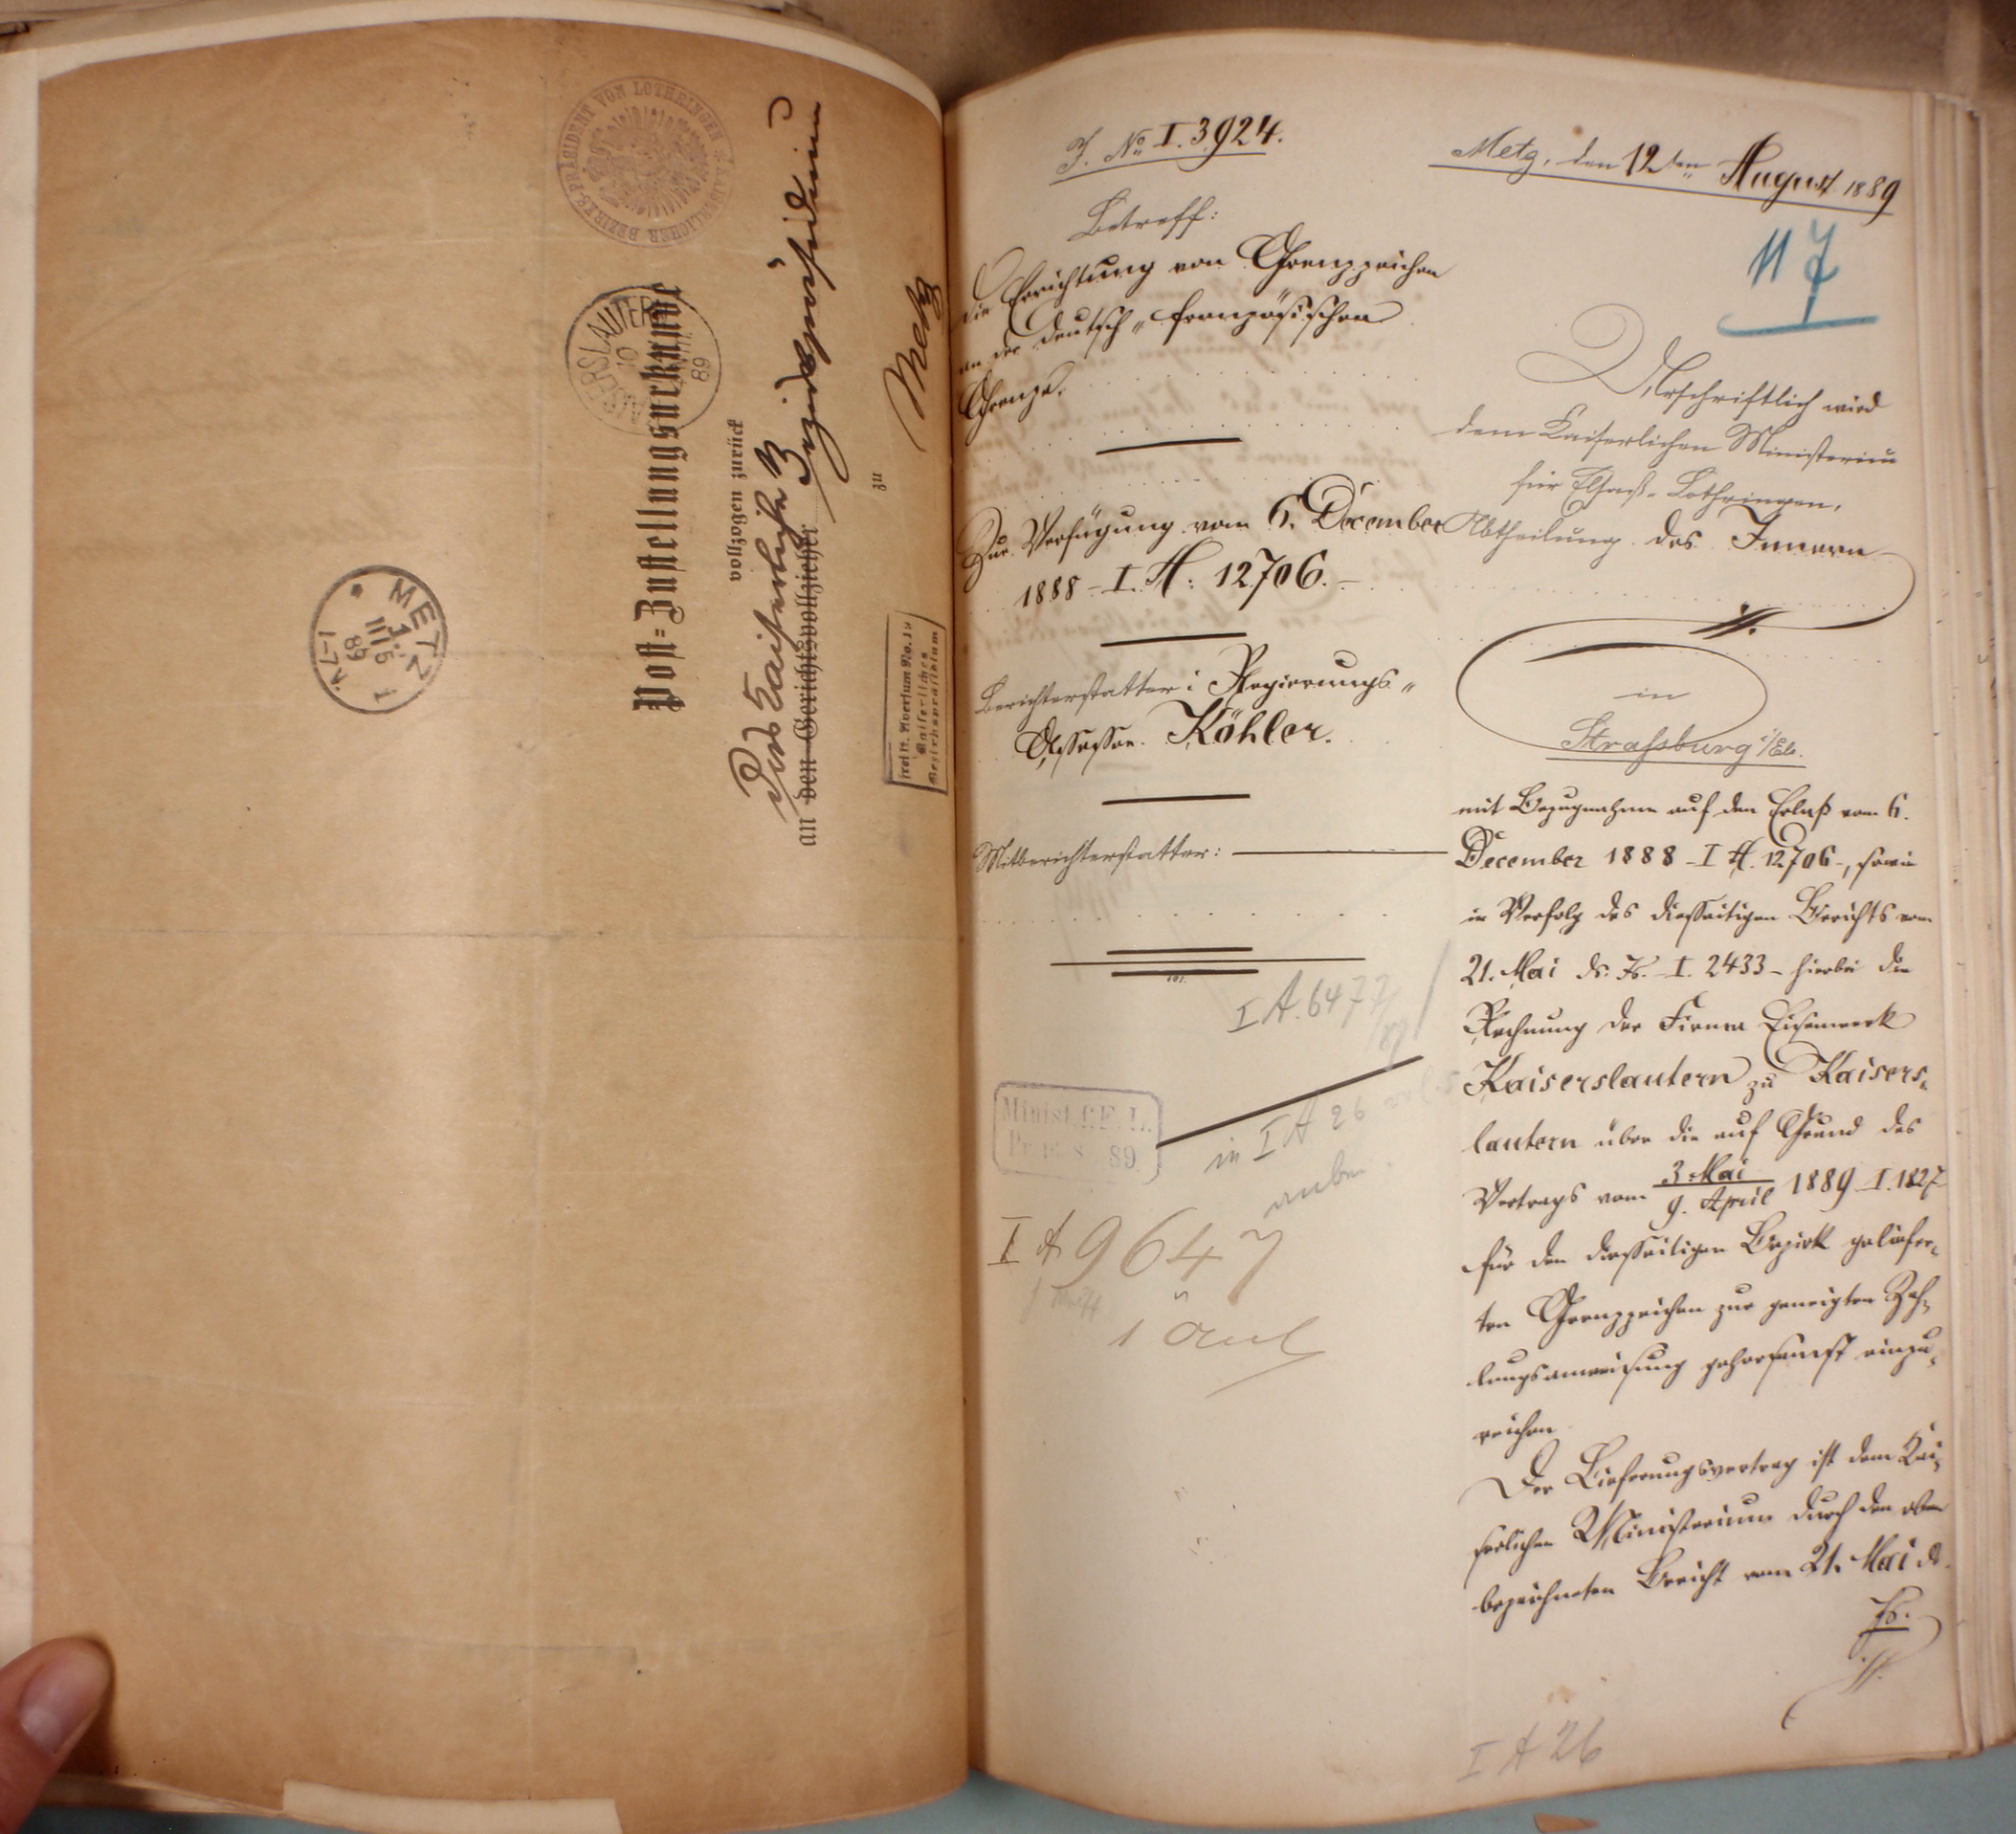 KAISERLICHER BEZIRKS-PRÄSIDENT VON LOTHRINGEN
KAISERSLAUTERN
10
89
Post-Zustellungsurkunde
vollzogen zurück
an den Gerichtsvollzieher
das Kaiserliche Bezirkspräsidium
zu
Metz
frei lt. Aversum No. 19
Kaiserliches
Bezirkspräsidium
METZ
89
1-7N.
J. No I. 3924.
Metz, den 12ten August 1889
117
Betreff:
die Errichtung von Grenzzeichen
an der deutsch-französischen
Grenze.
Zur Verfügung vom 6. December
1888 - I. A: 12706. -
Berichterstatter: Regierungs-
Assessor Köhler.
Mitberichterstatter:
I A. 6477
Minist. f. E. L.
Pr. 89.
in I A 26
I A 9647
1 Anl
Urschriftlich wird
dem Kaiserlichen Ministerium
für Elsaß-Lothringen,
Abtheilung des Innern
in
Strassburg i/Els.
mit Bezugnahme auf den Erlaß vom 6.
December 1888 - I A. 12706 -, sowie
in Verfolg des diesseitigen Berichts vom
21. Mai ds. Js. - I. 2433 - hierbei die
Rechnung der Firma Eisenwerk
Kaiserslautern zu Kaisers-
lautern über die auf Grund des
Vertrags vom 3. Mai / 9. April 1889 I. 1827
für den diesseitigen Bezirk geliefer-
ten Grenzzeichen zur geneigten Zah-
lungsanweisung gehorsamst einzu-
reichen
Der Lieferungsvertrag ist dem Kai-
serlichen Ministerium durch den oben
bezeichneten Bericht vom 21. Mai d.
Js.
I A 26